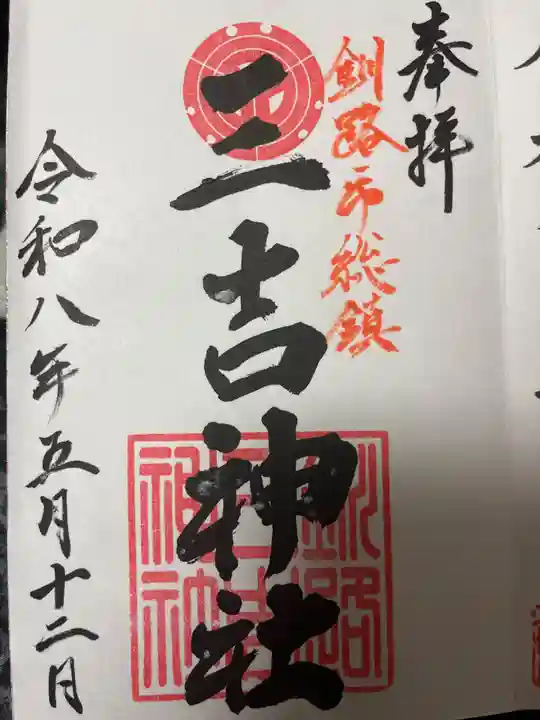 奉拝
釧路市総鎮
三吉神社
令和八年五月十二月
釧路
三吉
神社